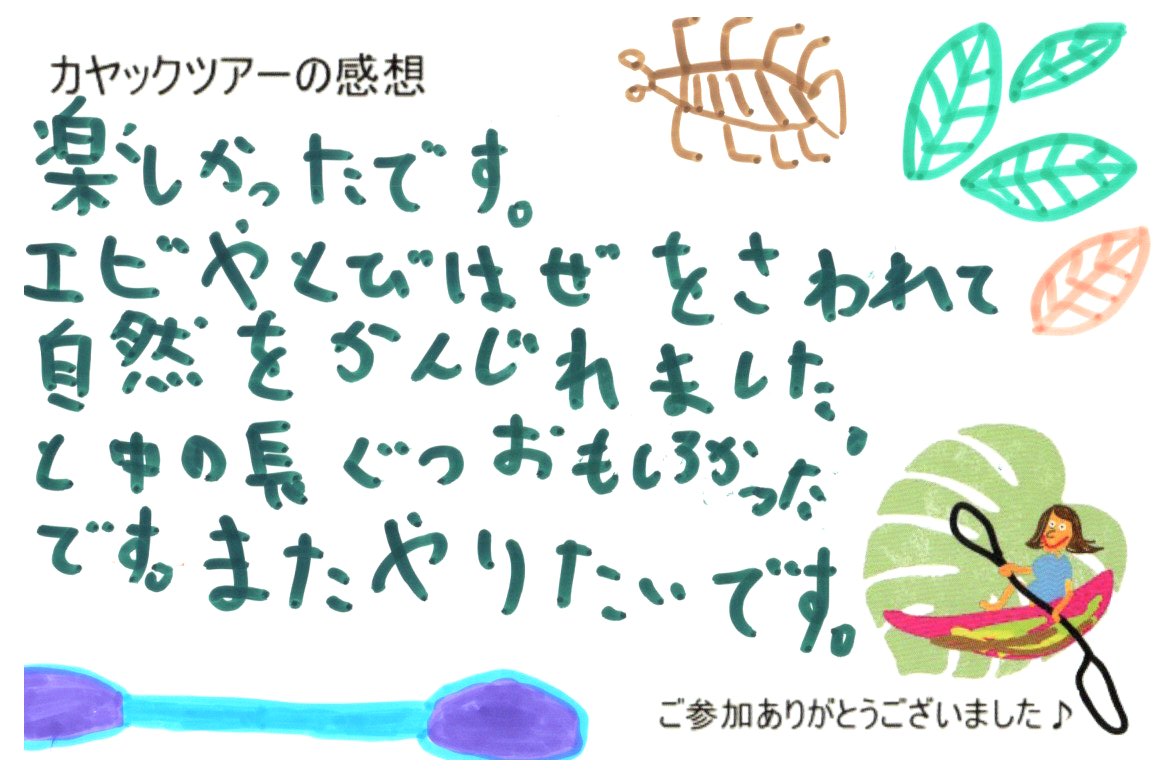 カヤックツアーの感想
楽しかったです。
エビやとびはぜをさわれて
自然をかんじれました。
と中の長ぐつおもしろかった
です。またやりたいです。
ご参加ありがとうございました♪